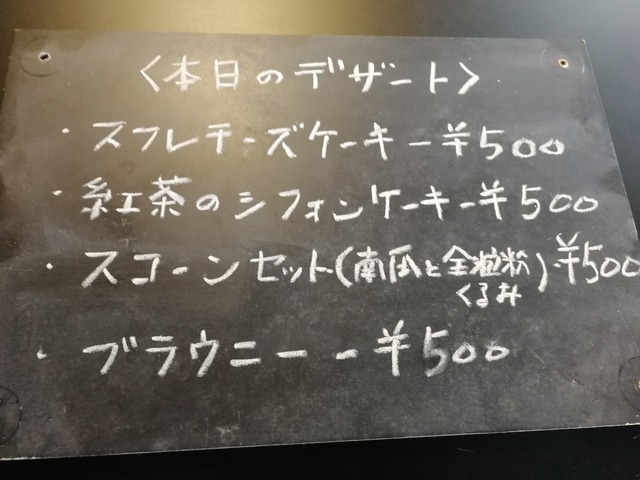 〈本日のデザート〉
・スフレチーズケーキー¥500
・紅茶のシフォンケーキー¥500
・スコーンセット(南瓜と全粒粉くるみ)¥500
・ブラウニー ー¥500